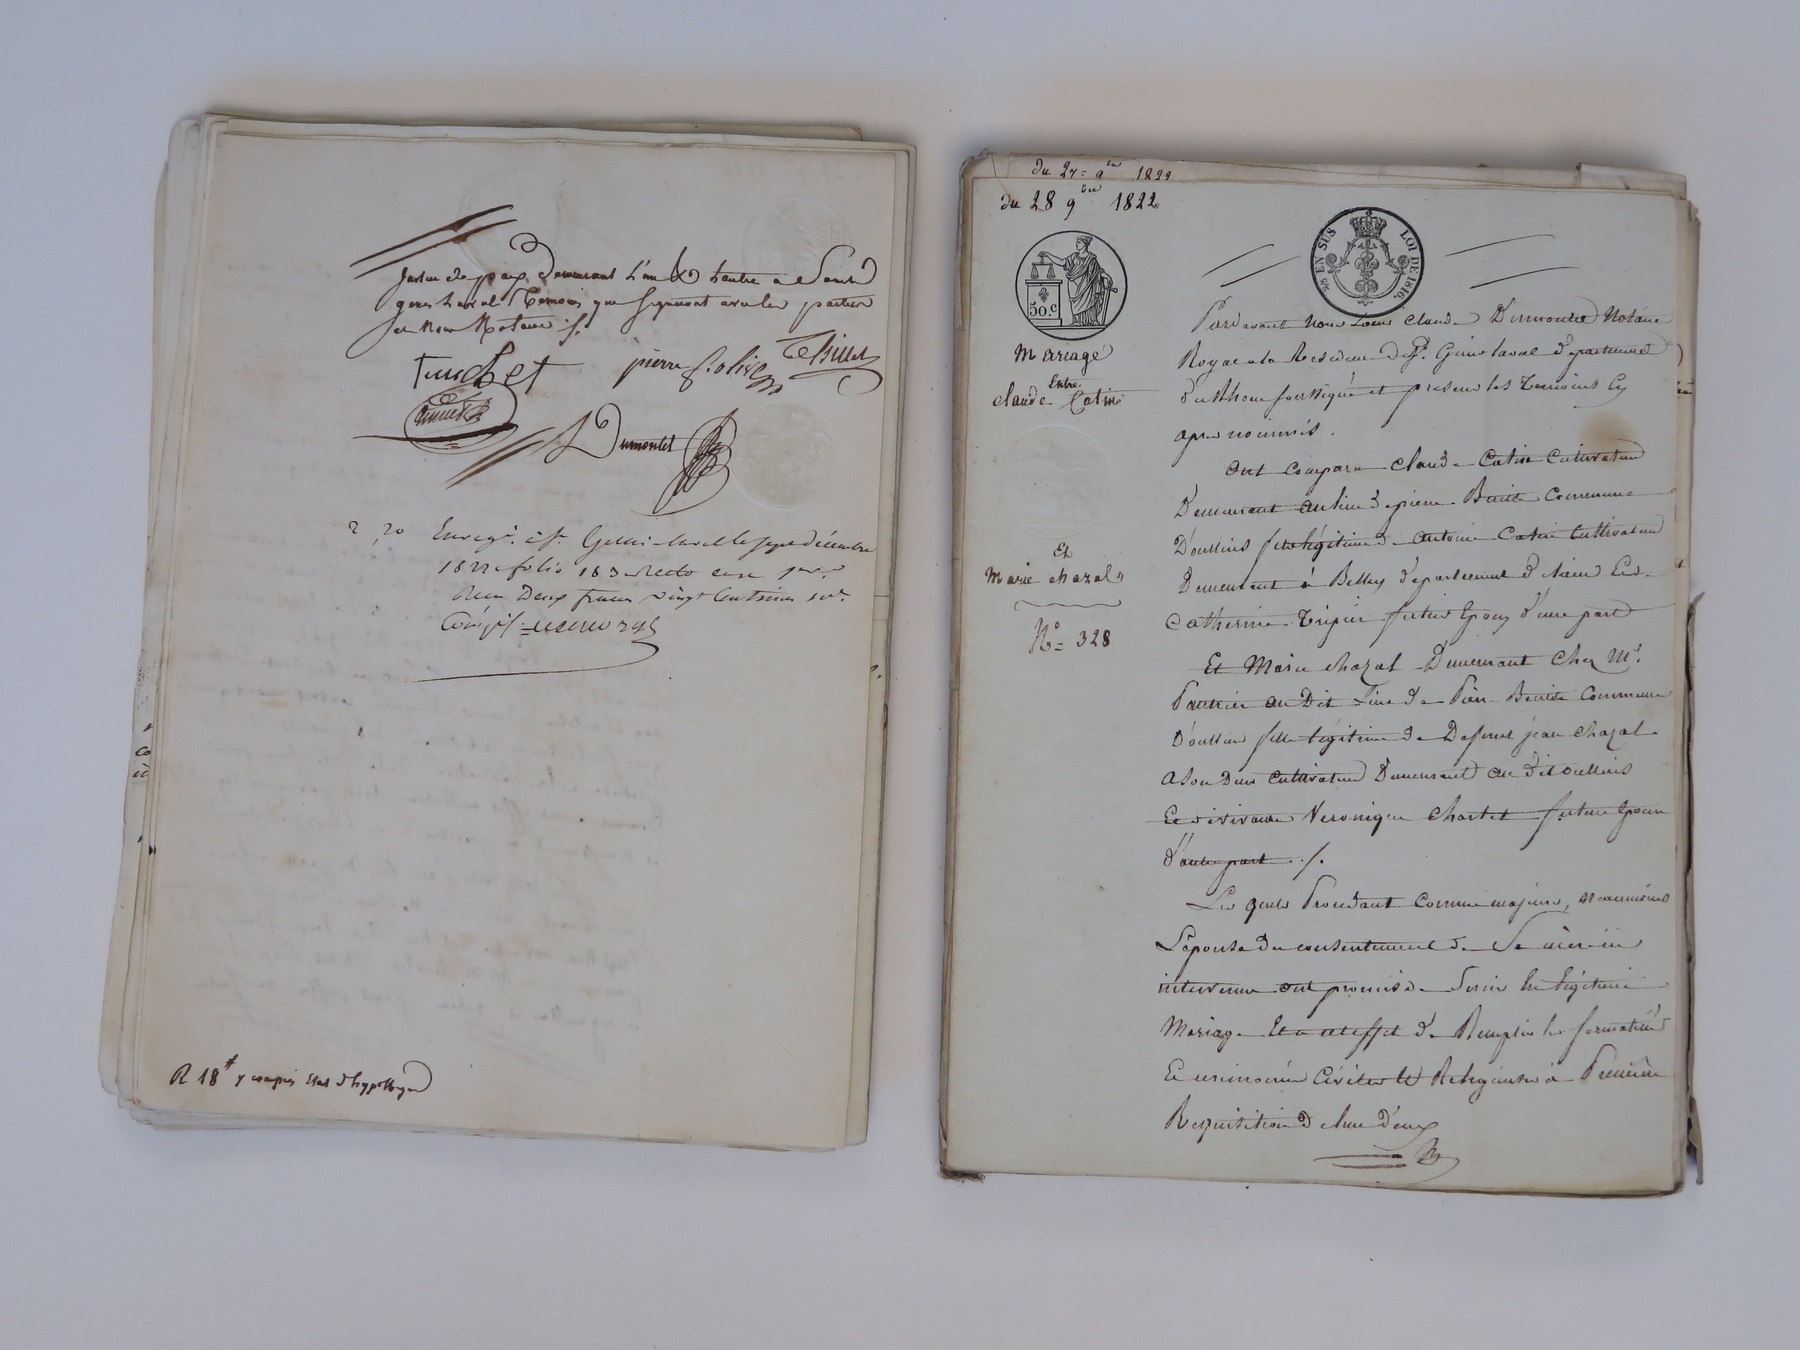 juge de paix, Demeurant l'un & l'autre à Saint
genis Laval Temoins qui signeront avec les parties
et Nous Notaire ./.
pierre
Dumontet
2,20 Enregt. à St. Genis-laval le sept décembre
1822 folio 183 recto case
Reçu Deux francs vingt Centimes
R 18 y compris Etat d'hypothèque
du 27 = 9bre 1822
du 28 9bre 1822
50.c
EN SUS LOI DE 1816.
Mariage
Entre
Claude Catin
Et
Marie chazal
No = 328
Pardevant Nous Louis Claude Dumontet Notaire
Royal a la Residence de St. Genis laval Département
du Rhone soussigné et présence des Temoins Cy
après nommés.
Ont comparu Claude Catin Cultivateur
Demeurant au lieu de pierre Bénite Commune
D'oullins fils légitime de Antoine Catin Cultivateur
Demeurant à Belley département de l'ain Et de
Catherine Tripier futur Epoux d'une part
Et Marie chazal Demeurant Chez Mr.
au Dit Lieu de Pierre Bénite Commune
D'oullins fille légitime de Defunt jean chazal
a Son Deces Cultivateur Demeurant au dit oullins
Et vivante Veronique Chartet future Epouse
d'autre part ./.
Les quels Procedant comme majeurs, neanmoins
L'épouse du consentement de Sa mère ici
intervenue ont promis de S'unir En légitime
Mariage Et a cet effet de Remplir les formalités
Et cérémonies Civiles & Religieuses à Première
Requisition de l'une d'eux